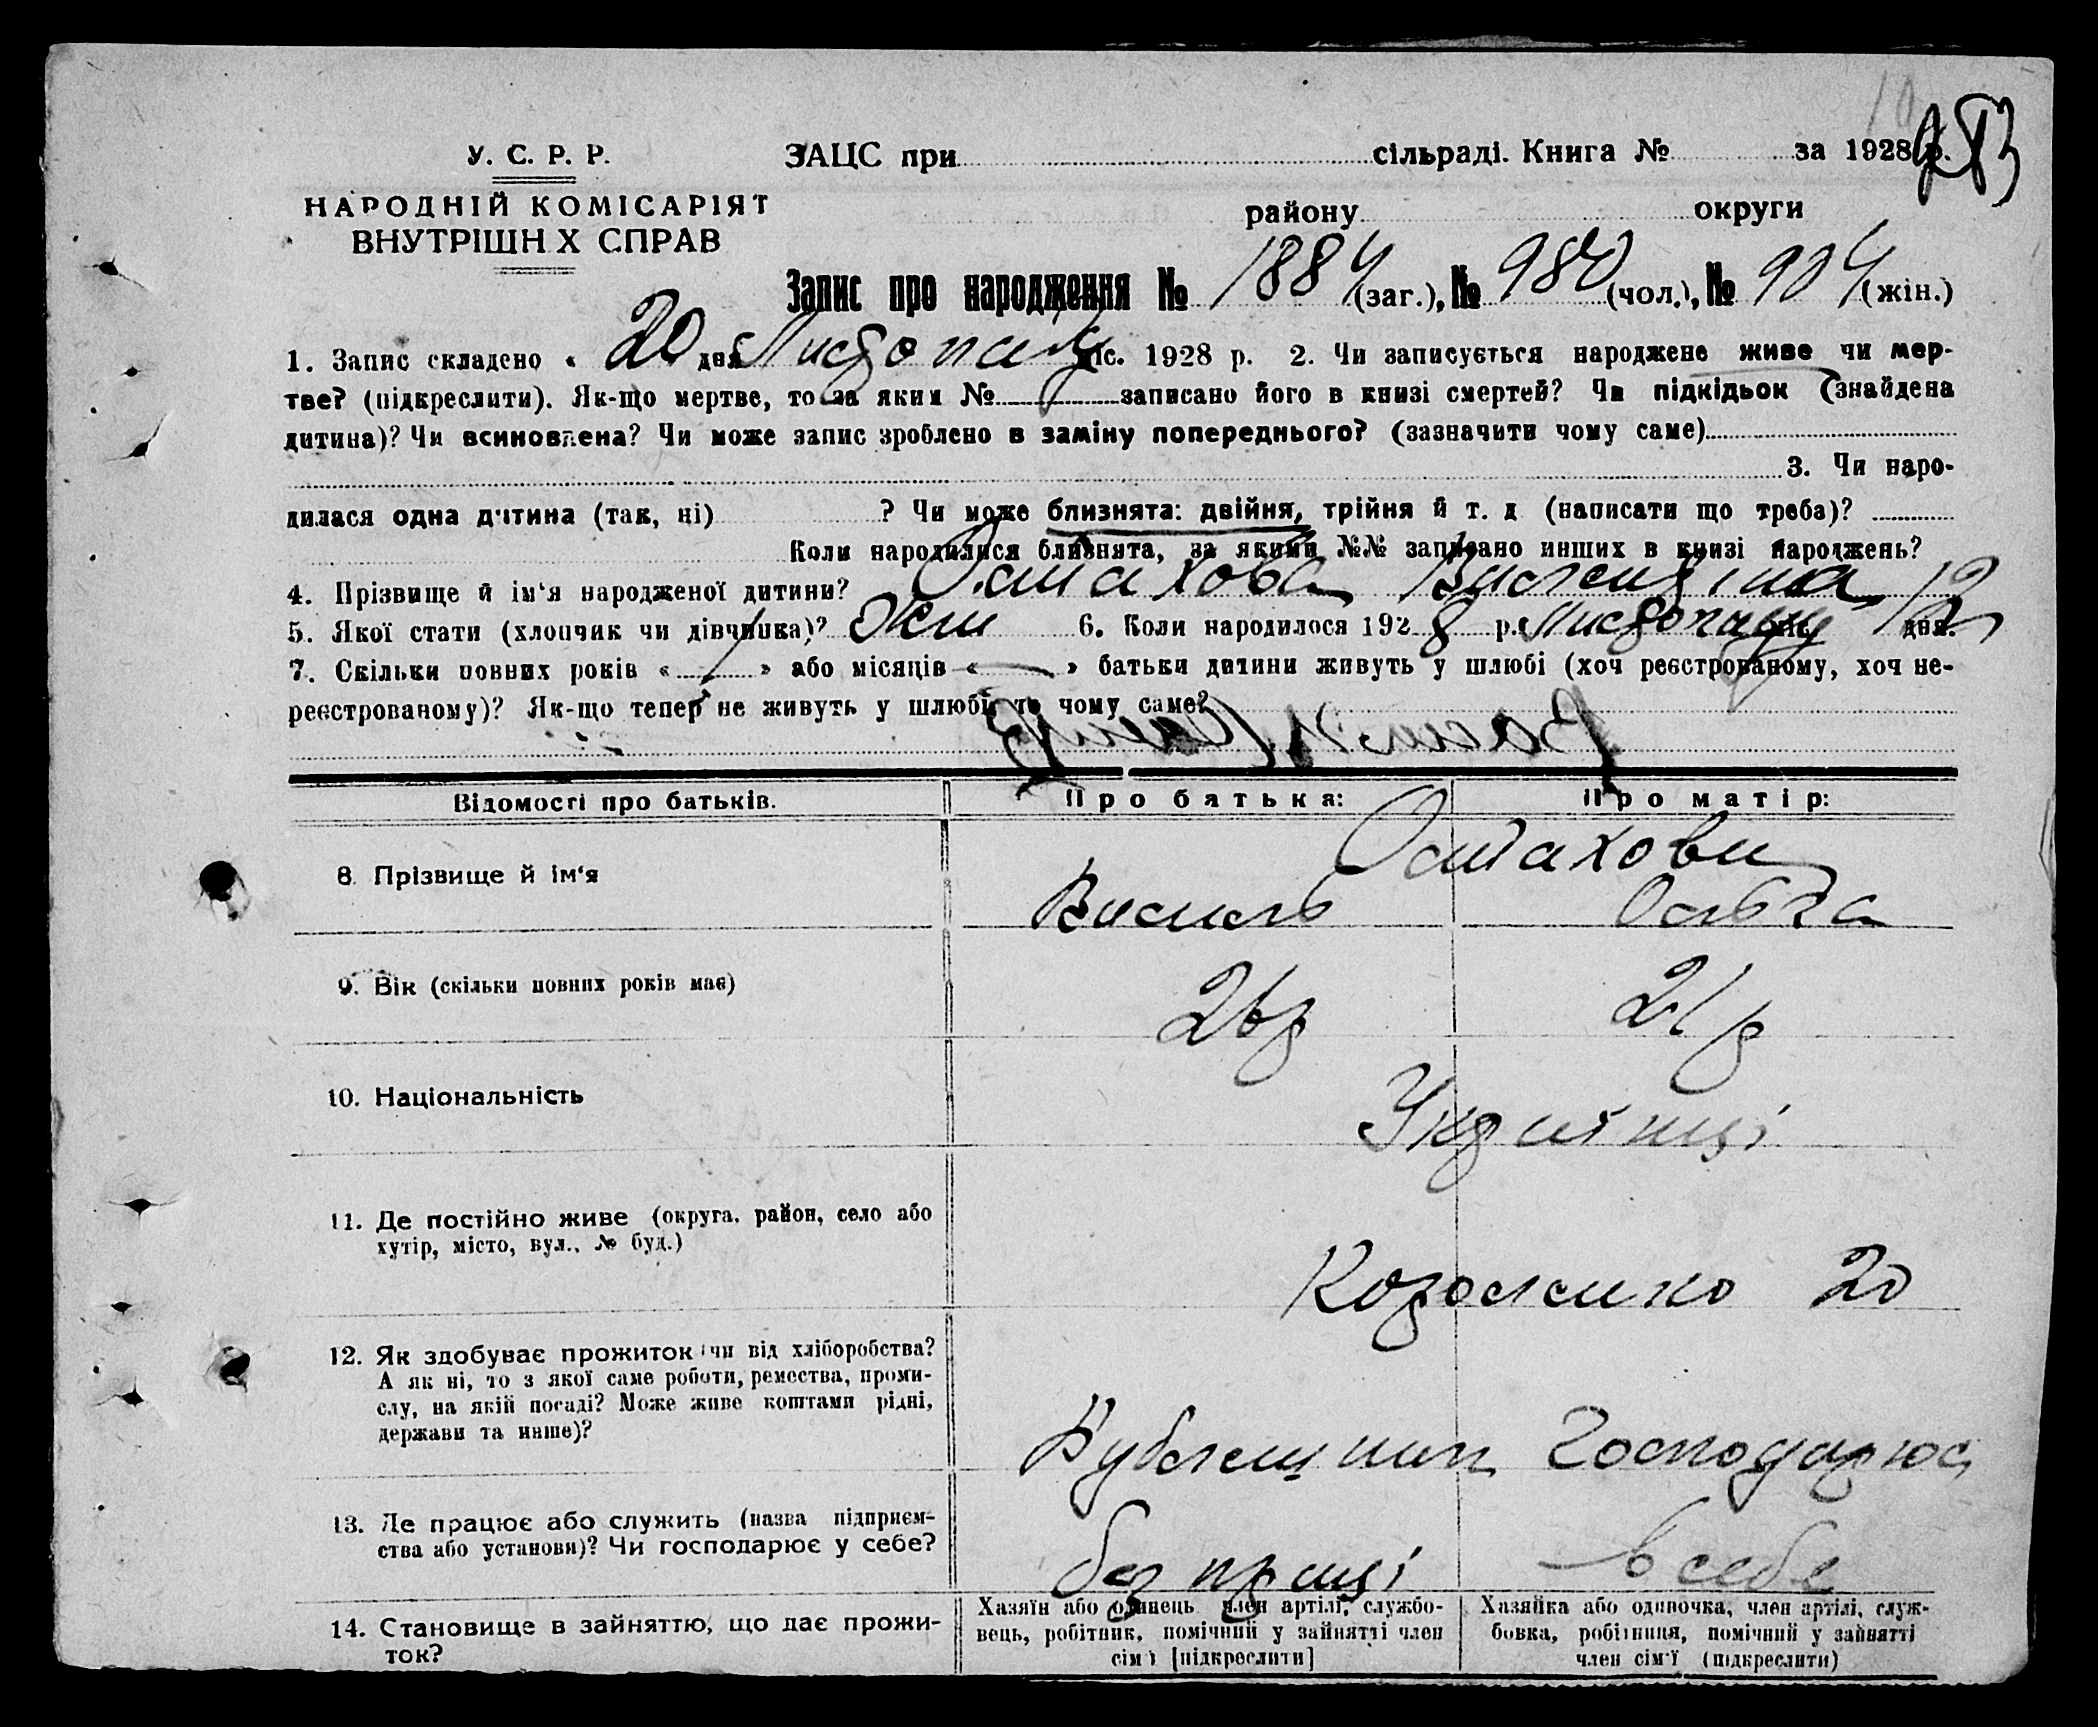 У. С. Р. Р.
НАРОДНІЙ КОМІСАРІЯТ
ВНУТРІШН Х СПРАВ
ЗАЦС при сільраді. Книга № за 1928 р.
району округи
Запис про народження № 1884 (заг.), № 980 (чол.), № 904 (жін.)
1. Запис складено « 20 дня Листопаду міс. 1928 р. 2. Чи записується народжене живе чи мер-
тве? (підкреслити). Як-що мертве, то за яким № записано його в книзі смертей? Чи підкідьок (знайдена
дитина)? Чи всиновлена? Чи може запис зроблено в заміну попереднього? (зазначити чому саме)
3. Чи наро-
дилася одна дитина (так, ні) ? Чи може близнята: двійня, трійня й т. д (написати що треба)?
Коли народилися близнята, за якими №№ записано инших в книзі народжень?
4. Прізвище й ім‘я народженої дитини? Остахова
5. Якої стати (хлопчик чи дівчинка)? жін 6. Коли народилося 1928 р. Листопаду міс. 12 дня.
7. Скільки повних років « 1 » або місяців « — » батьки дитини живуть у шлюбі (хоч реєстрованому, хоч не-
реєстрованому)? Як-що тепер не живуть у шлюбі, то чому саме?
Відомості про батьків. Про батька: Про матір:
Остахови
8. Прізвище й ім‘я Василь Ольга
9. Вік (скільки повних років має) 26 р 21 р
10. Національність Українці
11. Де постійно живе (округа, район, село або
хутір, місто, вул., № буд.)
20
12. Як здобуває прожиток (чи від хліборобства?
А як ні, то з якої саме роботи, ремества, проми-
слу, на якій посаді? Може живе коштами рідні,
держави та инше)?
Господарює
13. Де працює або служить (назва підприєм-
ства або установи)? Чи господарює у себе?
без праці в себе
14. Становище в зайняттю, що дає прожи-
ток?
Хазяїн або одинець член артілі, службо-
вець, робітник, помічний у зайнятті член
сім‘ї [підкреслити]
Хазяйка або одиночка, член артілі, служ-
бовка, робітниця, помічний у зайнятті
член сім‘ї (підкреслити)